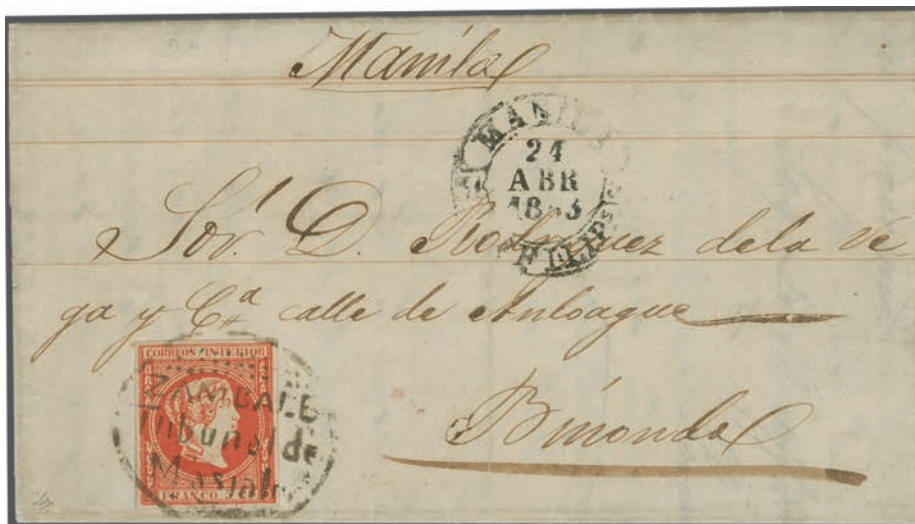 Manila
MANILA
24
ABR
18 3
FILIPS
Sor. D. Rodriguez dela Ve-
ga y Cª calle de Anloague
Binondo
CORREOS INTERIOR
ZAMBALE
Tribunal de
FRANCO